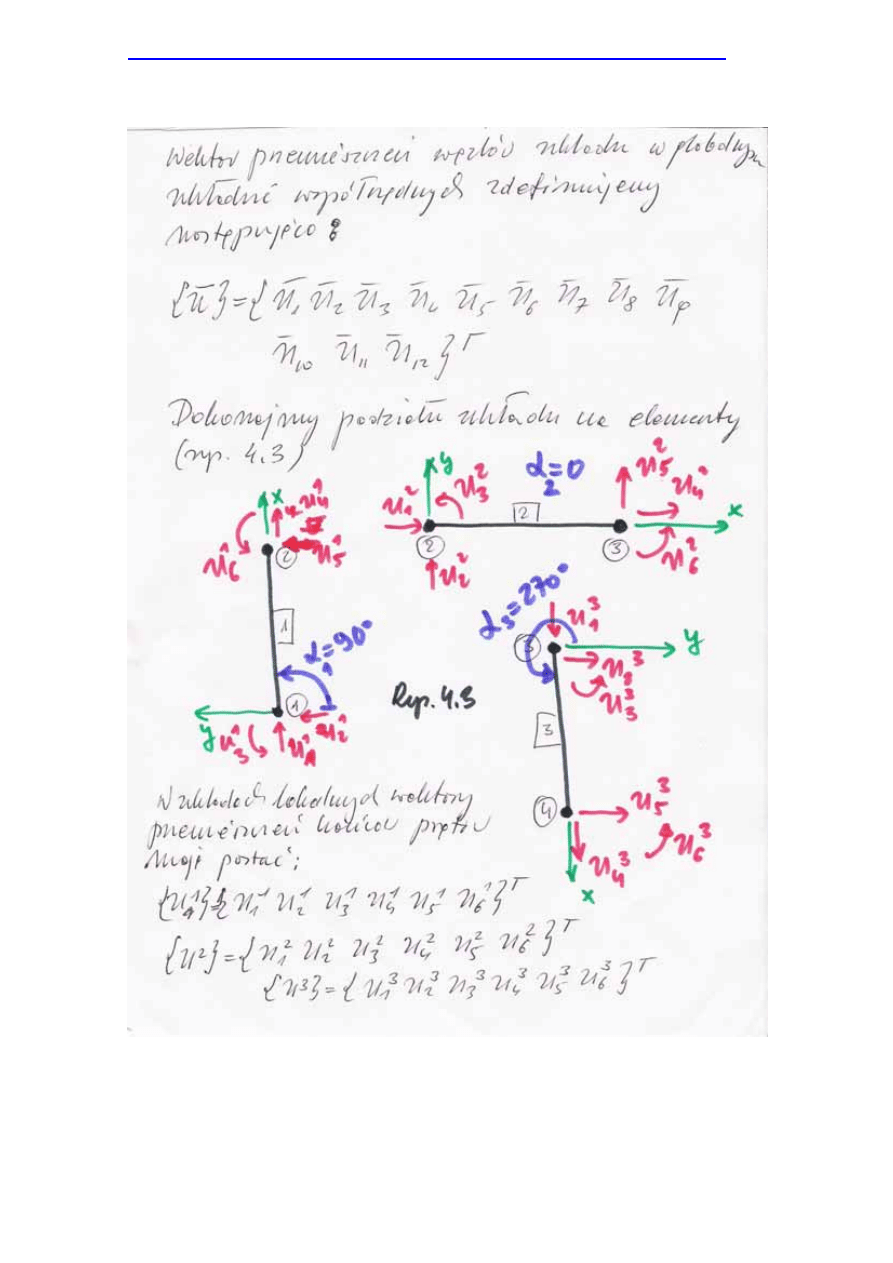 Wektor przemieszczeń węzłów układu w globalnym
układzie współrzędnych zdefiniujemy
następująco:
{ū}={ū₁ ū₂ ū₃ ū₄ ū₅ ū₆ ū₇ ū₈ ū₉
ū₁₀ ū₁₁ ū₁₂}ᵀ
Dokonajmy podziału układu na elementy
(rys. 4.3)
x
u₄¹
u₅¹
u₆¹
2
1
α₁=90°
1
y
u₃¹
u₁¹
u₂¹
y
u₃²
α₂=0
u₅²
u₄²
u₁²
2
x
2
3
u₂²
u₆²
α₃=270°
u₁³
3
y
u₂³
u₃³
3
4
u₅³
u₄³
u₆³
x
Rys. 4.3
W układach lokalnych wektory
przemieszczeń końców prętów
mają postać:
{u¹}={u₁¹ u₂¹ u₃¹ u₄¹ u₅¹ u₆¹}ᵀ
{u²}={u₁² u₂² u₃² u₄² u₅² u₆²}ᵀ
{u³}={u₁³ u₂³ u₃³ u₄³ u₅³ u₆³}ᵀ